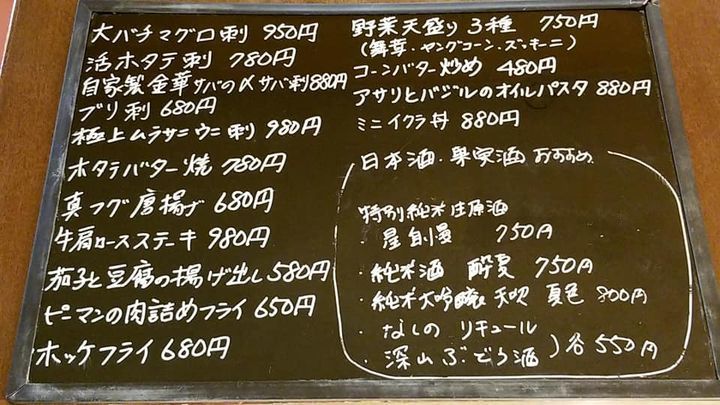 大バチマグロ刺 950円
活ホタテ刺 780円
自家製金華サバの〆サバ刺880円
ブリ刺 680円
極上ムラサキウニ刺 980円
ホタテバター焼 780円
真フグ唐揚げ 680円
牛肩ロースステーキ 980円
茄子と豆腐の揚げ出し 580円
ピーマンの肉詰めフライ 650円
ホッケフライ 680円
野菜天盛り3種 750円
(舞茸・ヤングコーン・ズッキーニ)
コーンバター炒め 480円
アサリとバジルのオイルパスタ 880円
ミニイクラ丼 880円
日本酒・果実酒 おすすめ
特別純米生原酒
・屋自慢 750円
・純米酒 酔夏 750円
・純米大吟醸 天吹 夏色 800円
・なしの リキュール
・深山ぶどう酒 ) 各 550円